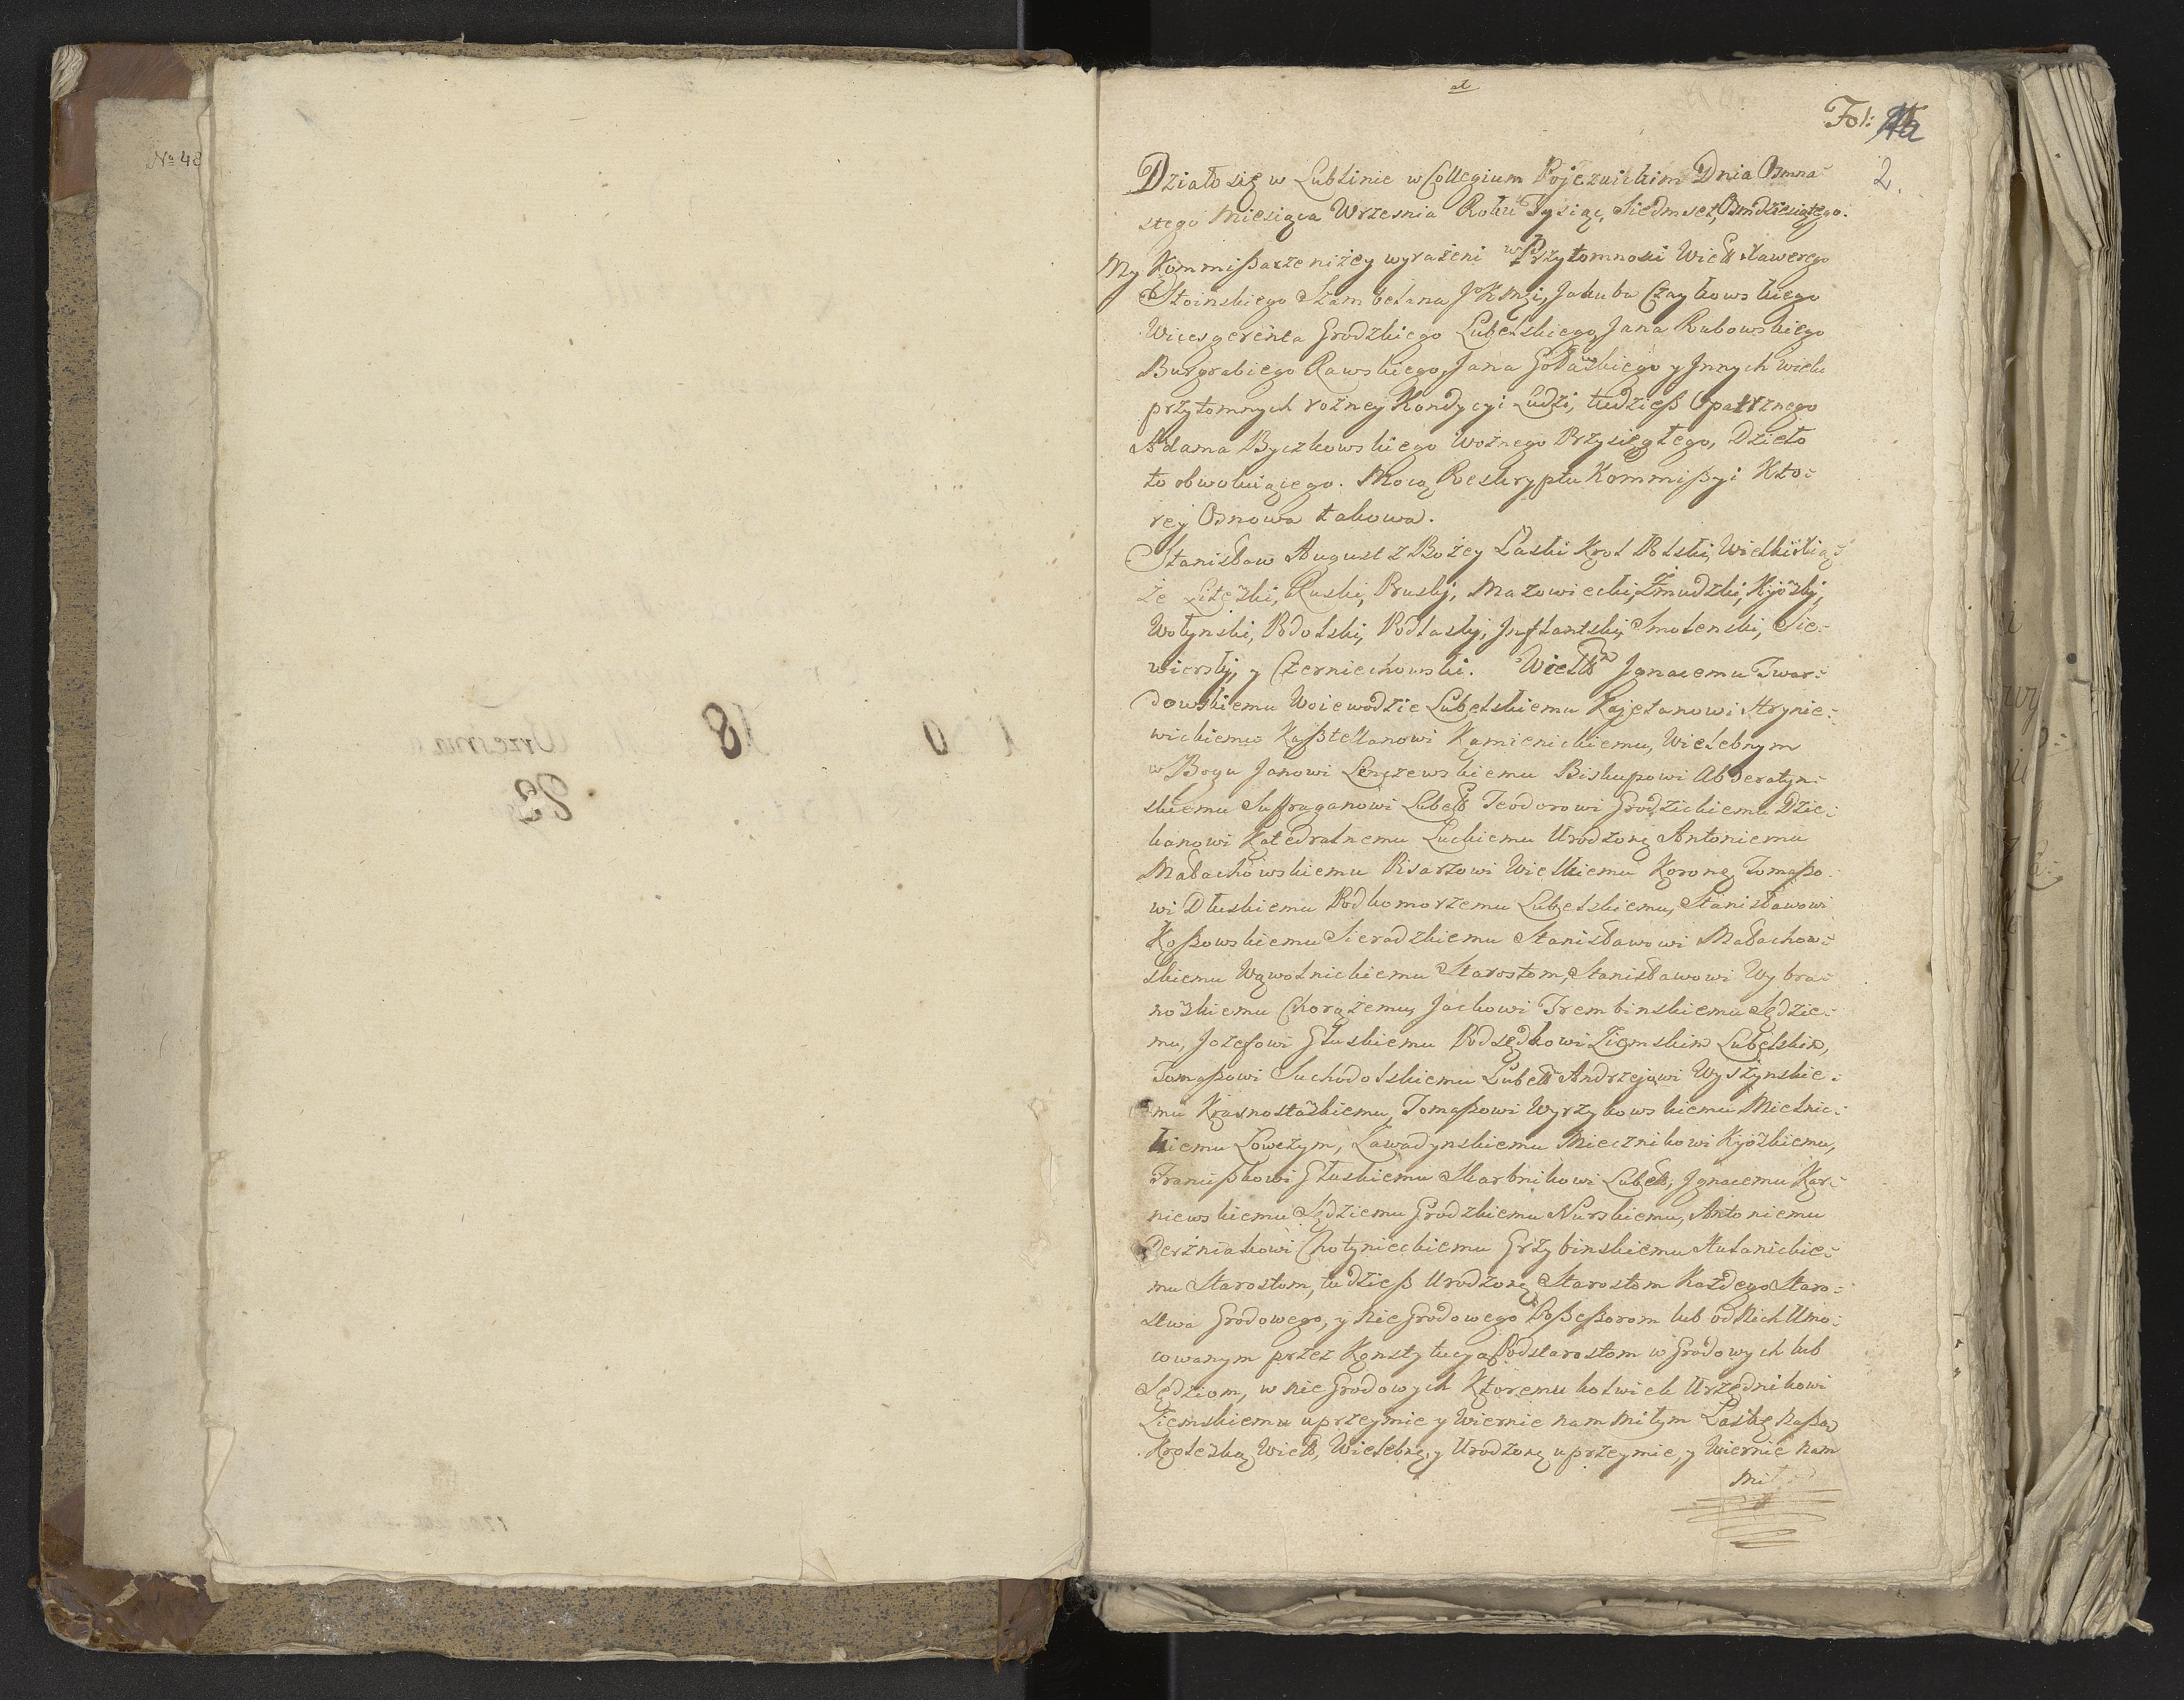 No 48
Fol: 1a
2.
Działo się w Lublinie w Collegium Pojezuickim Dnia Osmna=
stego Miesiąca Wrzesnia Roku Tysiąc, Siedmset, Osmdziesiątego.
My Kommißarze niżey wyrażeni w Przytomnosci Wielb Xawerego
Stoinskiego Szambelana JKMci, Jakuba Czaykowskiego
Vicesgerenta Grodzkiego Lubelskiego, Jana Rubowskiego
Burgrabiego Rawskiego, Jana Goławskiego y Innych wielu
przytomnych rożney Kondycyi Ludzi, tudzieß Opatrznego
Adama Byczkowskiego Woźnego Przysięgłego, Dzieło
to obwołuiącego. Mocą Reskryptu Kommißyi Kto=
rej Osnowa takowa.
Stanisław August z Bożey Łaski Krol Polski, Wielki Xią=
że Litewski, Ruski, Pruski, Mazowiecki, Żmudzki, Kijowski,
Wołynski, Podolski, Podlaski, Inflantski, Smolenski, Sie=
wierski, y Czerniechowski. Wielb Ignacemu Twar=
dowskiemu Woiewodzie Lubelskiemu Kajetanowi Hrynie=
wickiemu Kaßtellanowi Kamienickiemu, Wielebnym
w Bogu Janowi Lenczewskiemu Biskupowi Abderatyn=
skiemu Suffraganowi Lubel Teodorowi Grodzickiemu Dzie=
kanowi Katedralnemu Łuckiemu Urodzonę Antoniemu
Małachowskiemu Pisarzowi Wielkiemu Koronę Tomaßo=
wi Dłuskiemu Podkomorzemu Lubelskiemu, Stanisławowi
Koßowskiemu Sieradzkiemu Stanisławowi Małachow=
skiemu Wąwolnickiemu Starostom, Stanisławowi Wybra=
nowskiemu Chorążemu, Jackowi Trembinskiemu Sędzie=
mu, Jozefowi Głuskiemu Podsędkowi Ziemskim Lubelskim,
Tomaßowi Suchodolskiemu Lubel Andrzejowi Wyszynskie=
mu Krasnostawskiemu, Tomaßowi Wyrzykowskiemu Mielnic=
kiemu Łowczym, Zawadynskiemu Miecznikowi Kijowskiemu,
Francißkowi Głuskiemu Skarbnikowi Lubel, Ignacemu Kar=
niewskiemu Sędziemu Grodzkiemu Nurskiemu, Antoniemu
Derźniakowi Chotynieckiemu Grzybinskiemu Hulanickie=
mu Starostom, tudzieß Urodzonę Starostom Każdego Staro=
stwa Grodowego, y nie Grodowego Poßeßorom lub od Nich Umo=
cowanym przez Konstytucyą Podstarostom w Grodowych lub
Sędziom, w nie Grodowych Ktoremu kolwiek Urzędnikowi
Ziemskiemu uprzeymie y Wiernie nam Miłym Łaskę naßą
Krolewską Wielb, Wielebnę, y Urodzonę uprzeymie, y Wiernie nam
Mi